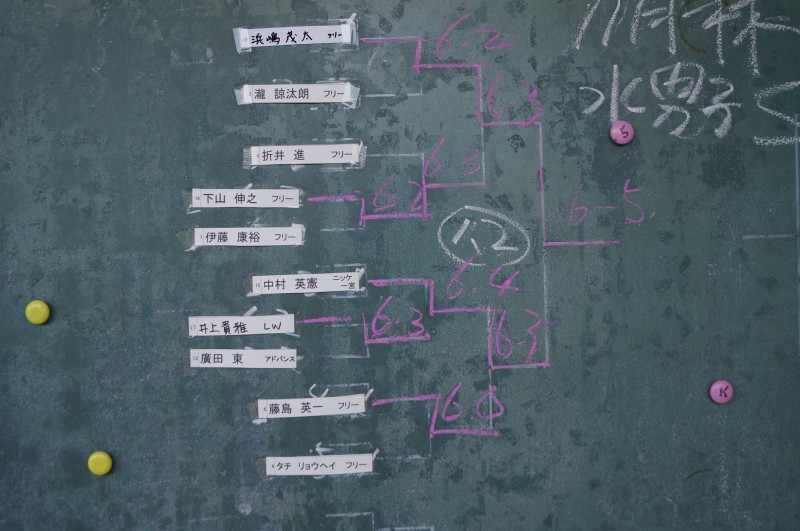 浜嶋 茂太 フリー
6-2
瀧 諒汰朗 フリー
6-3
水 男子 S
S
折井 進 フリー
6 3
下山 伸之 フリー
6 2
6-5
伊藤 康裕 フリー
1, 2
中村 英憲 ニッケ一宮
6-4
井上貴雅 LW
6-3
6-3
廣田 東 アドバンス
藤島 英一 フリー
6 0
K
タチ リョウヘイ フリー